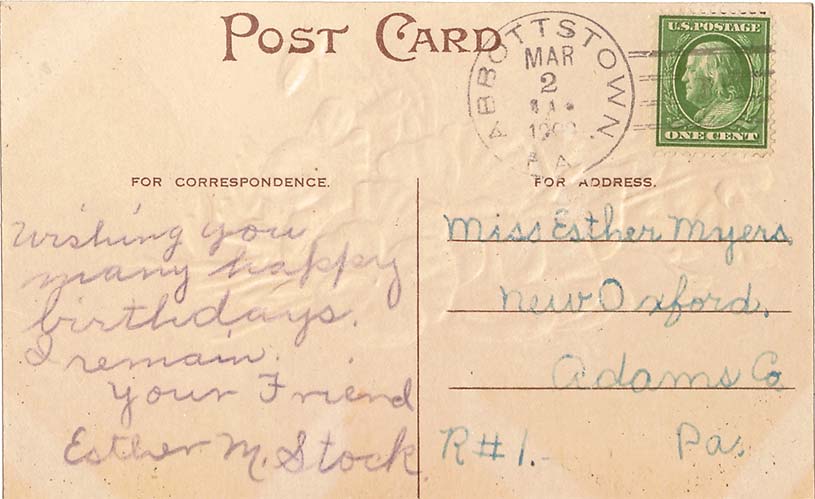 POST CARD
ABBOTTSTOWN
MAR
2
PA
U.S. POSTAGE
ONE CENT
FOR CORRESPONDENCE.
Wishing you
many happy
birthdays.
I remain.
Your Friend
Esther M. Stock
FOR ADDRESS.
Miss Esther Myers,
New Oxford.
Adams Co
R#1.- Pa.